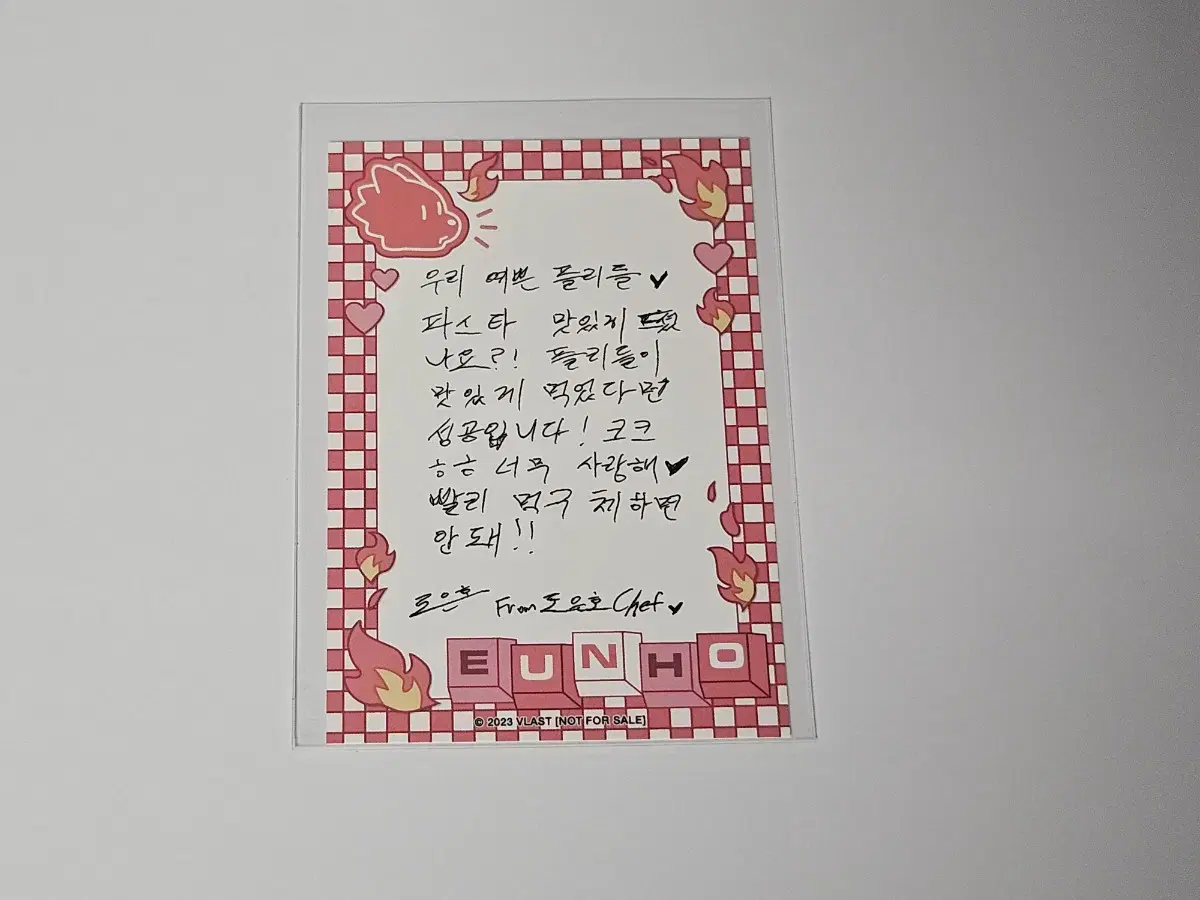 우리 예쁜 플리들♥
파스타 맛있게 드셨
나요?! 플리들이
맛있게 먹었다면
성공입니다! ㅋㅋ
ㅎㅎ 너무 사랑해♥
빨리 먹구 체하면
안돼!!
도은호 From 도은호 Chef♥
EUNHO
© 2023 VLAST [NOT FOR SALE]